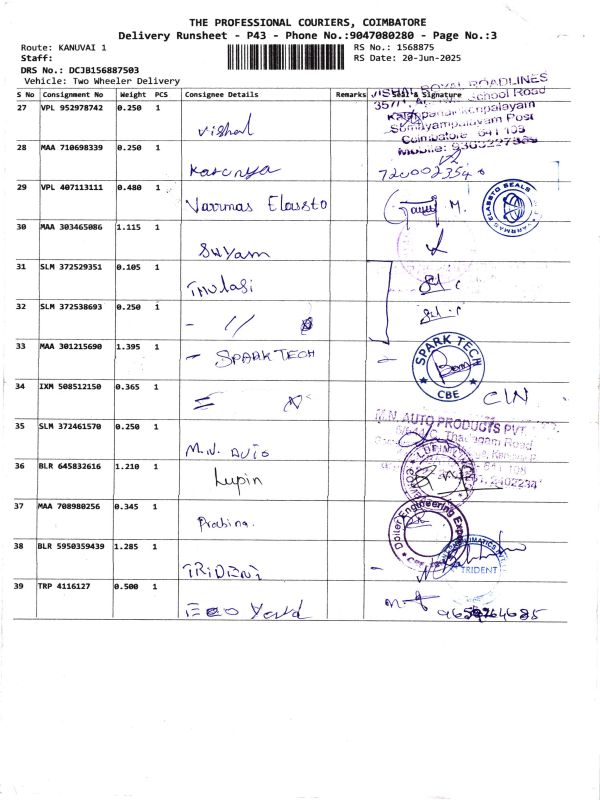 THE PROFESSIONAL COURIERS, COIMBATORE
Delivery Runsheet - P43 - Phone No.:9047080280 - Page No.:3
Route: KANUVAI 1
RS No.: 1568875
Staff:
RS Date: 20-Jun-2025
DRS No.: DCJB156887503
Vehicle: Two Wheeler Delivery
S No Consignment No Weight PCS Consignee Details Remarks Seal & Signature
27 VPL 952978742 0.250 1
Vishal
VISHAL ROYAL ROADLINES
School Road
Somayampalayam Post
Coimbatore 641 108
28 MAA 710698339 0.250 1
Karunya
29 VPL 407113111 0.480 1
Varrmas Elassto
M.
VARRMAS ELASSTO SEALS
30 MAA 303465086 1.115 1
Suyam
31 SLM 372529351 0.105 1
Thulasi
32 SLM 372538693 0.250 1
- 11
33 MAA 301215690 1.395 1
- SPARK TECH
-
SPARK TECH
CBE
34 IXM 508512150 0.365 1
CIN
35 SLM 372461570 0.250 1
M.N. AUTO
M.N. AUTO PRODUCTS PVT.
Thadagam Road
36 BLR 645832616 1.210 1
Lupin
37 MAA 708980256 0.345 1
Prabina.
38 BLR 5950359439 1.285 1
TRIDENT
-
TRIDENT
39 TRP 4116127 0.500 1